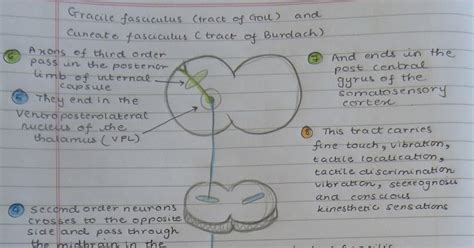 Gracile fasciculus (tract of Goll) and
Cuneate fasciculus (tract of Burdach)
6 Axons of third order
pass in the posterior
limb of internal
capsule
5 They end in the
Ventroposterolateral
nucleus of the
thalamus (VPL)
7 And ends in the
post central
gyrus of the
somatosensory
cortex
8 This tract carries
fine touch, vibration,
tactile localization,
tactile discrimination
vibration, stereognosis
and conscious
kinesthetic sensations
4 Second order neurons
crosses to the opposite
side and pass through
the midbrain in the